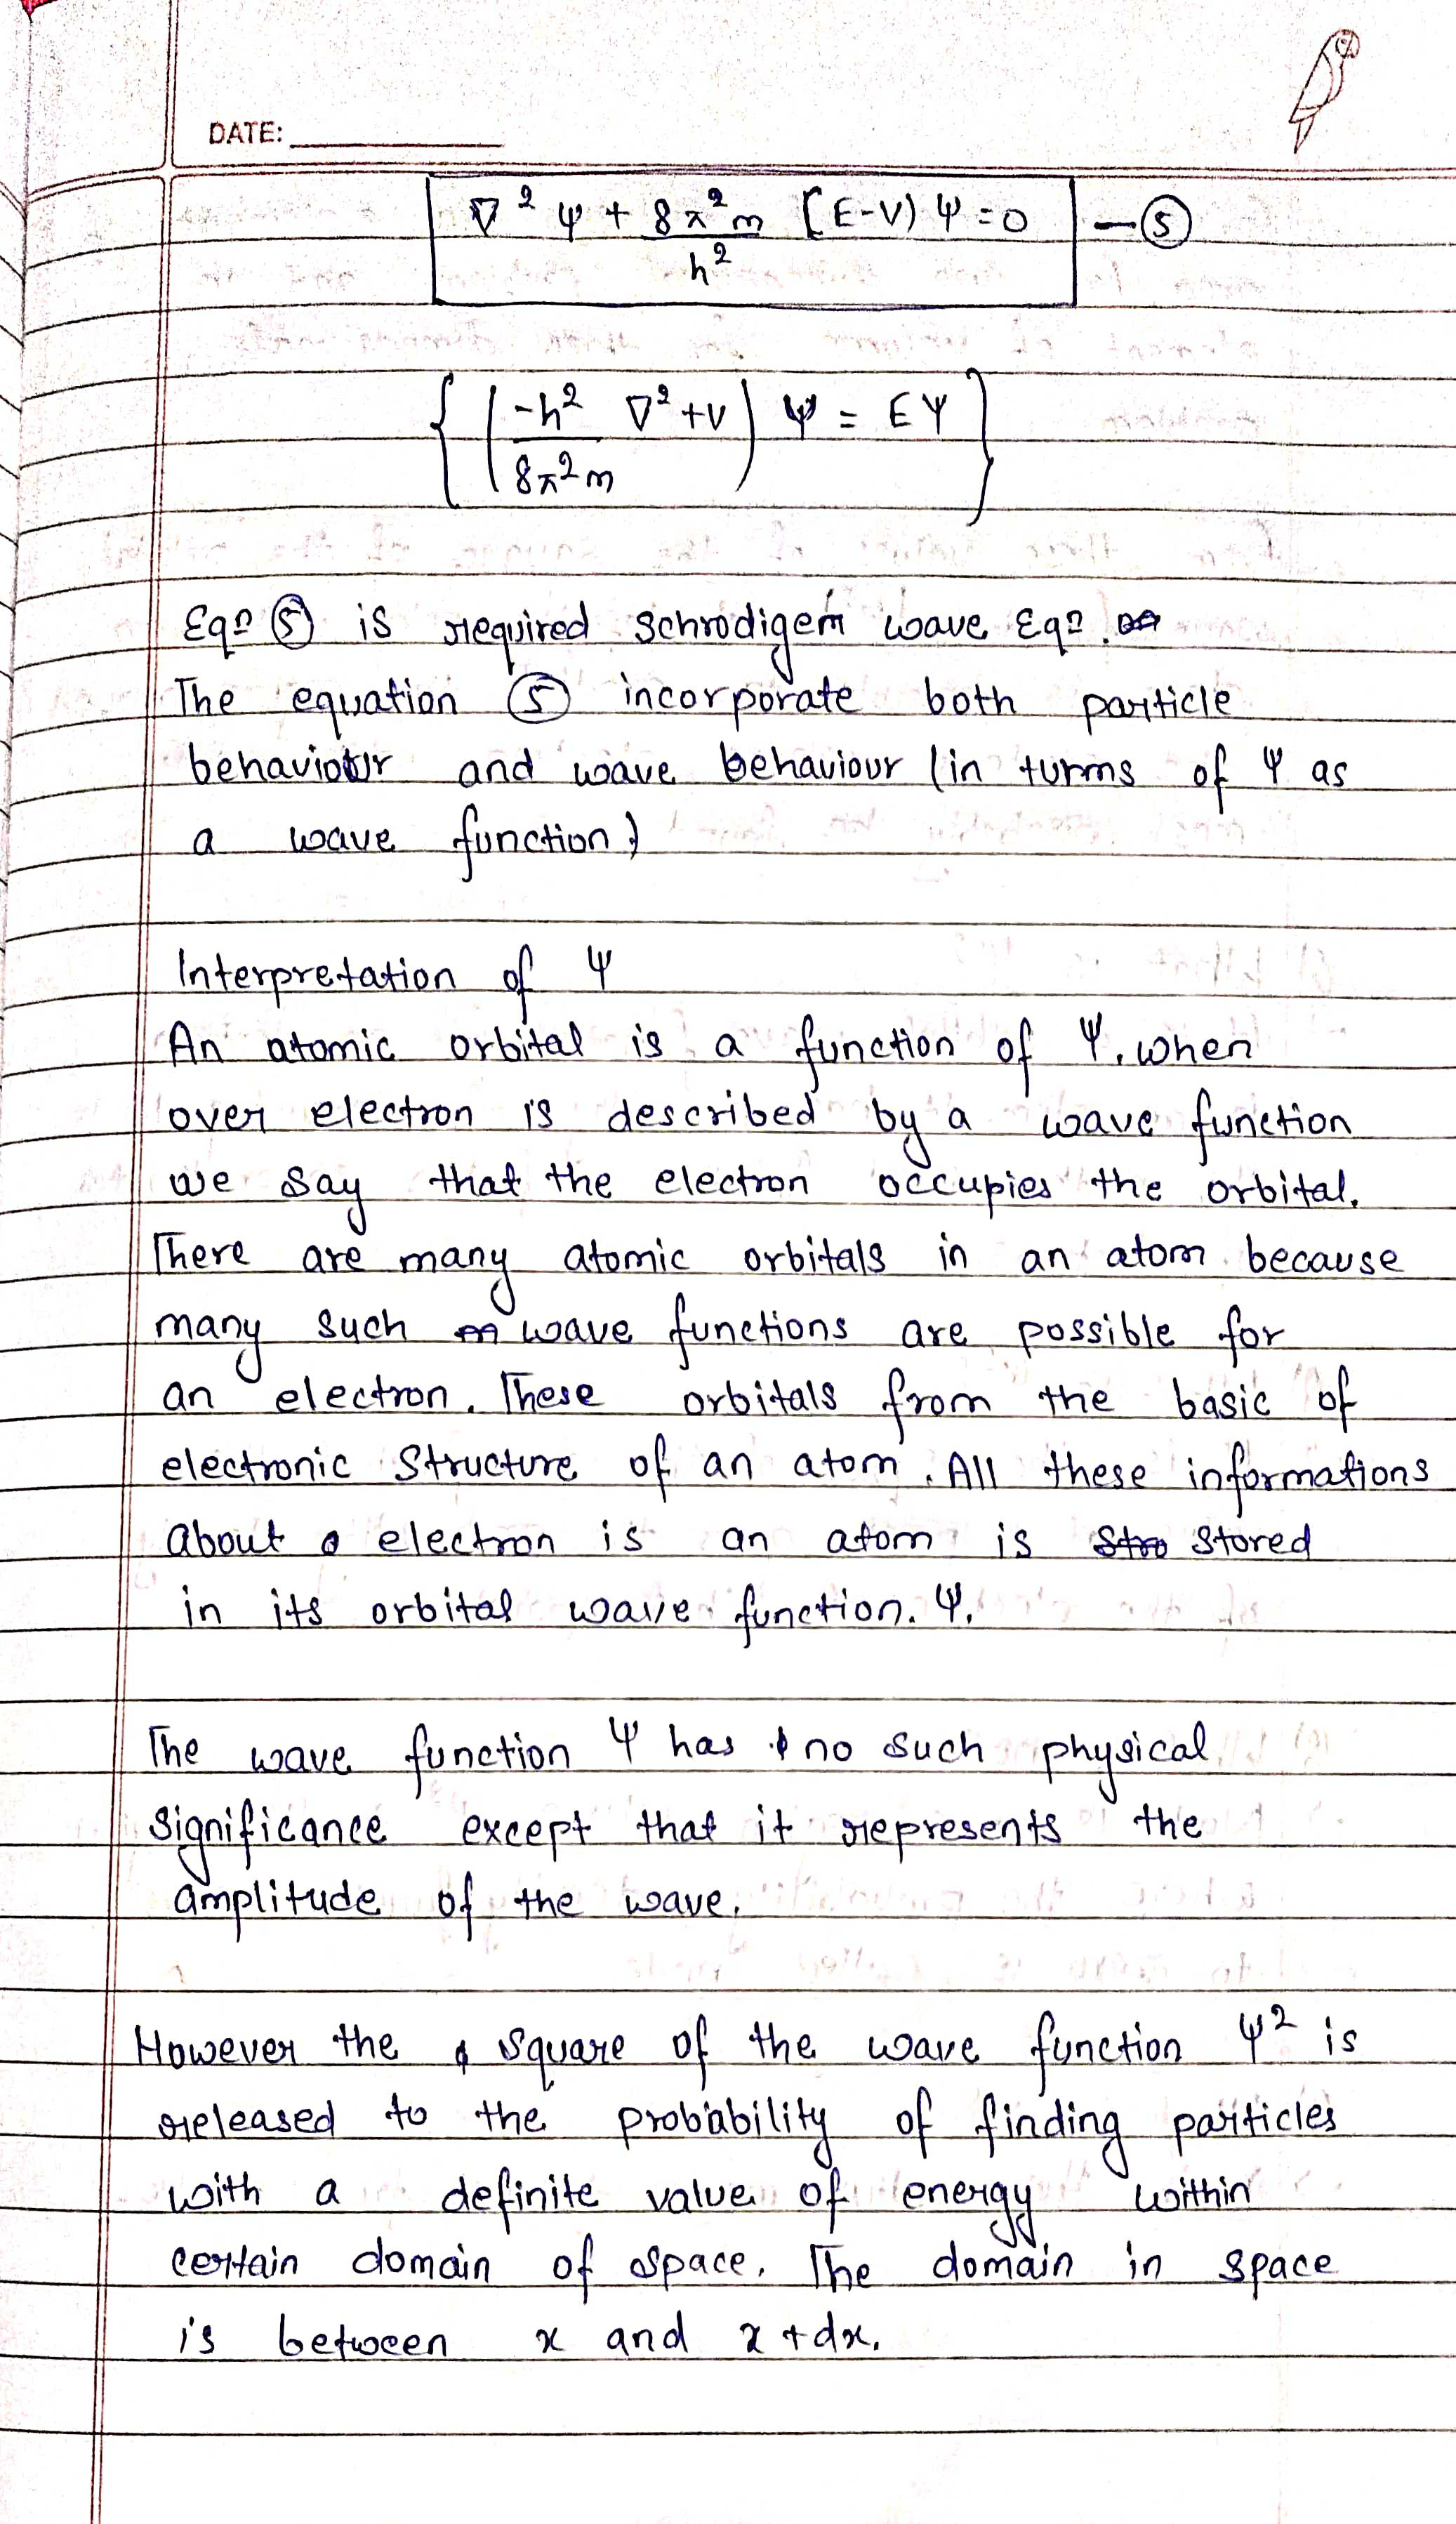 DATE:
∇² ψ + 8π²m/h² [E-V) ψ = 0 — ⑤
{ ( -h²/8π²m ∇² + V ) ψ = Eψ }
Eqn ⑤ is required Schrodigem wave Eqn.
The equation ⑤ incorporate both particle
behaviour and wave behaviour (in turms of ψ as
a wave function)
Interpretation of ψ
An atomic orbital is a function of ψ. when
over electron is described by a wave function
we say that the electron occupies the orbital.
There are many atomic orbitals in an atom because
many such wave functions are possible for
an electron. These orbitals from the basic of
electronic Structure of an atom. All these informations
about electron is an atom is Stored
in its orbital wave function. ψ.
The wave function ψ has no such physical
significance except that it represents the
amplitude of the wave.
However the square of the wave function ψ² is
released to the probability of finding particles
with a definite value of energy within
certain domain of space. The domain in space
is between x and x + dx.